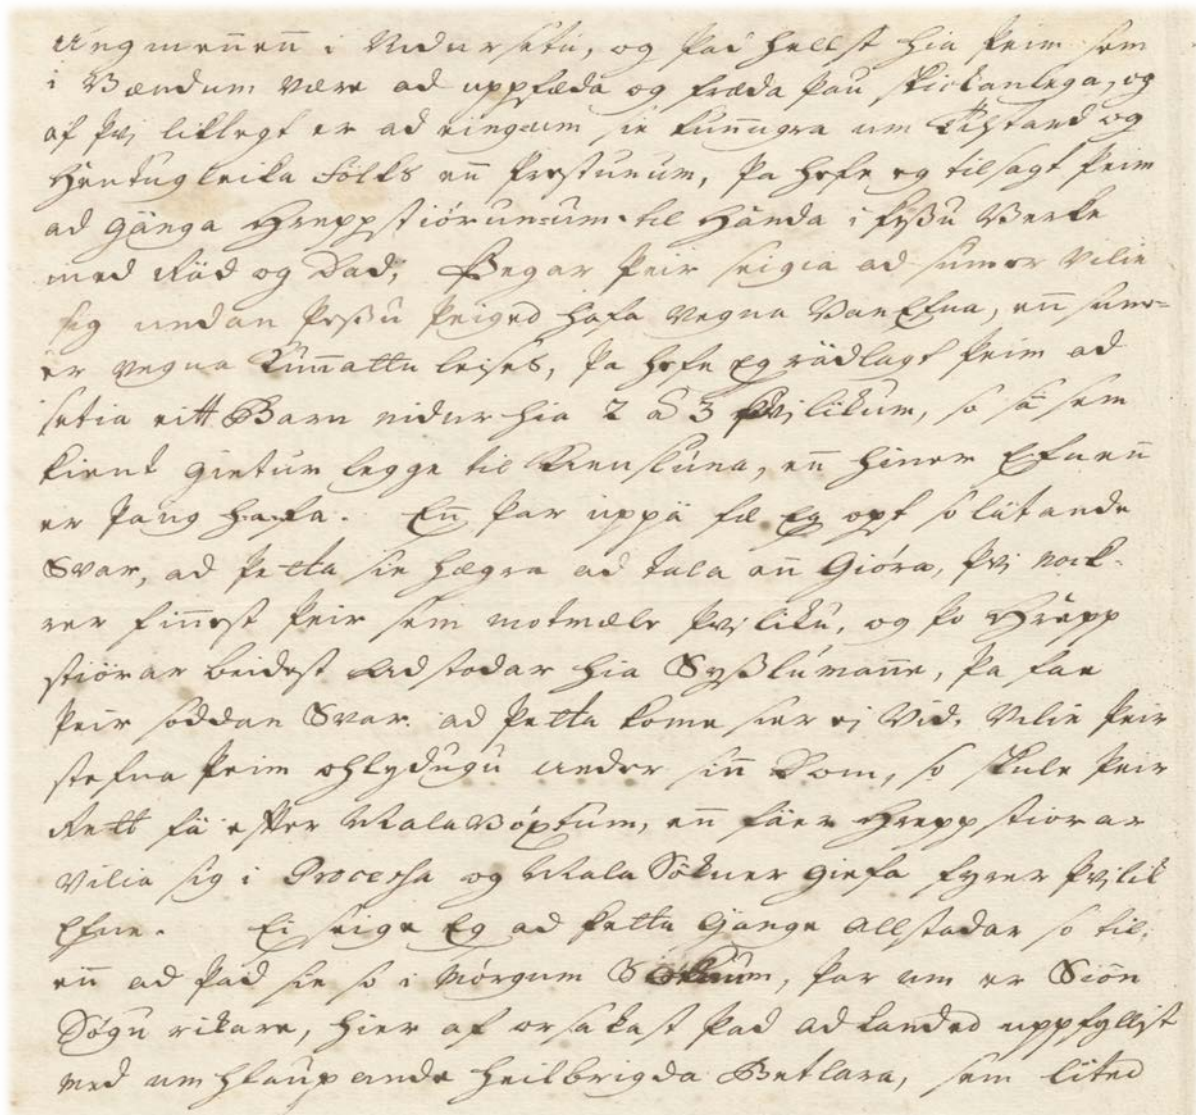 ungmeneñ i Nidursetu, og þad hellst hia þeim sem
i Vændum være ad uppfæda og fræda þau skickanlega, og
af þvj liklegt er ad eingum sie kunnugra um Tilstand og
Hentugleika Fólks eñ Prestunum, þa hefe eg tilsagt þeim
ad gänga Hreppstiórunum til Handa i þessu Verke
med Räd og Dad; Þegar þeir seigia ad sumer vilie
sig undan þessu þeiged hafa vegna Van Efna, eñ sum-
er vegna Kuñattu leises, þa hefe Eg rädlagt þeim ad
setia eitt Barn nidur hia 2 a 3 þvilikum, so sä sem
kient gietur legge til Kensluna, eñ hiner Efneñ
er þaug hafa. Eñ þar uppä fæ Eg opt so lütande
Svar, ad þetta sie hægra ad tala eñ Gióra, þvj nock-
rer fiñest þeir sem motmæle þvj liku, og þo Hrepp
stiórar beidest Adstodar hia Sysslumañe, þa fae
þeir soddan Svar. ad þetta kome sier ej vid. Vilie þeir
stefna þeim ohlydugu under siñ Dom, so skule þeir
Rett fä epter Mala Vöxtum, eñ fäer Hreppstiorar
vilia sig i Processa og Mala Sökner giefa fyrer þvilik
Efne. Ei seige Eg ad þetta Gange allstadar so til,
eñ ad þad sie so i Mórgum Stödum, þar um er Siön
Sögu rikare, hier af orsakast þad ad Landed uppfyllist
med umhlaupande heilbrigda Betlara, sem lited